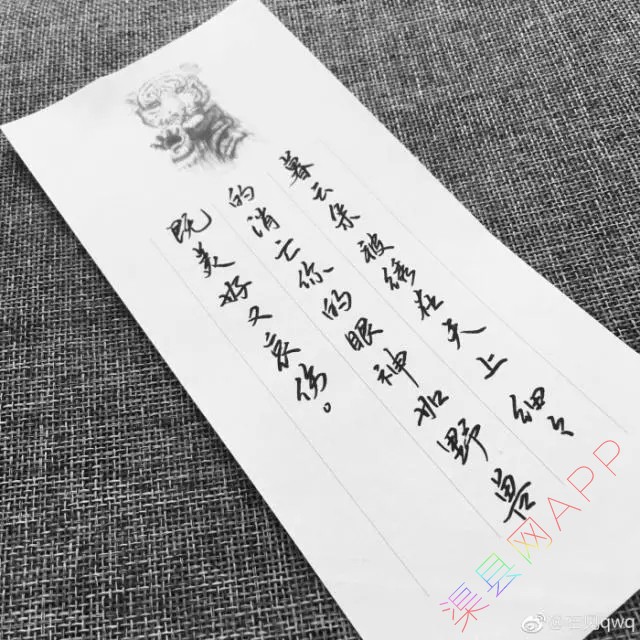 暮云朵被绣在天上细々
的消亡你的眼神如野兽
既美好又哀伤。
渠县网APP